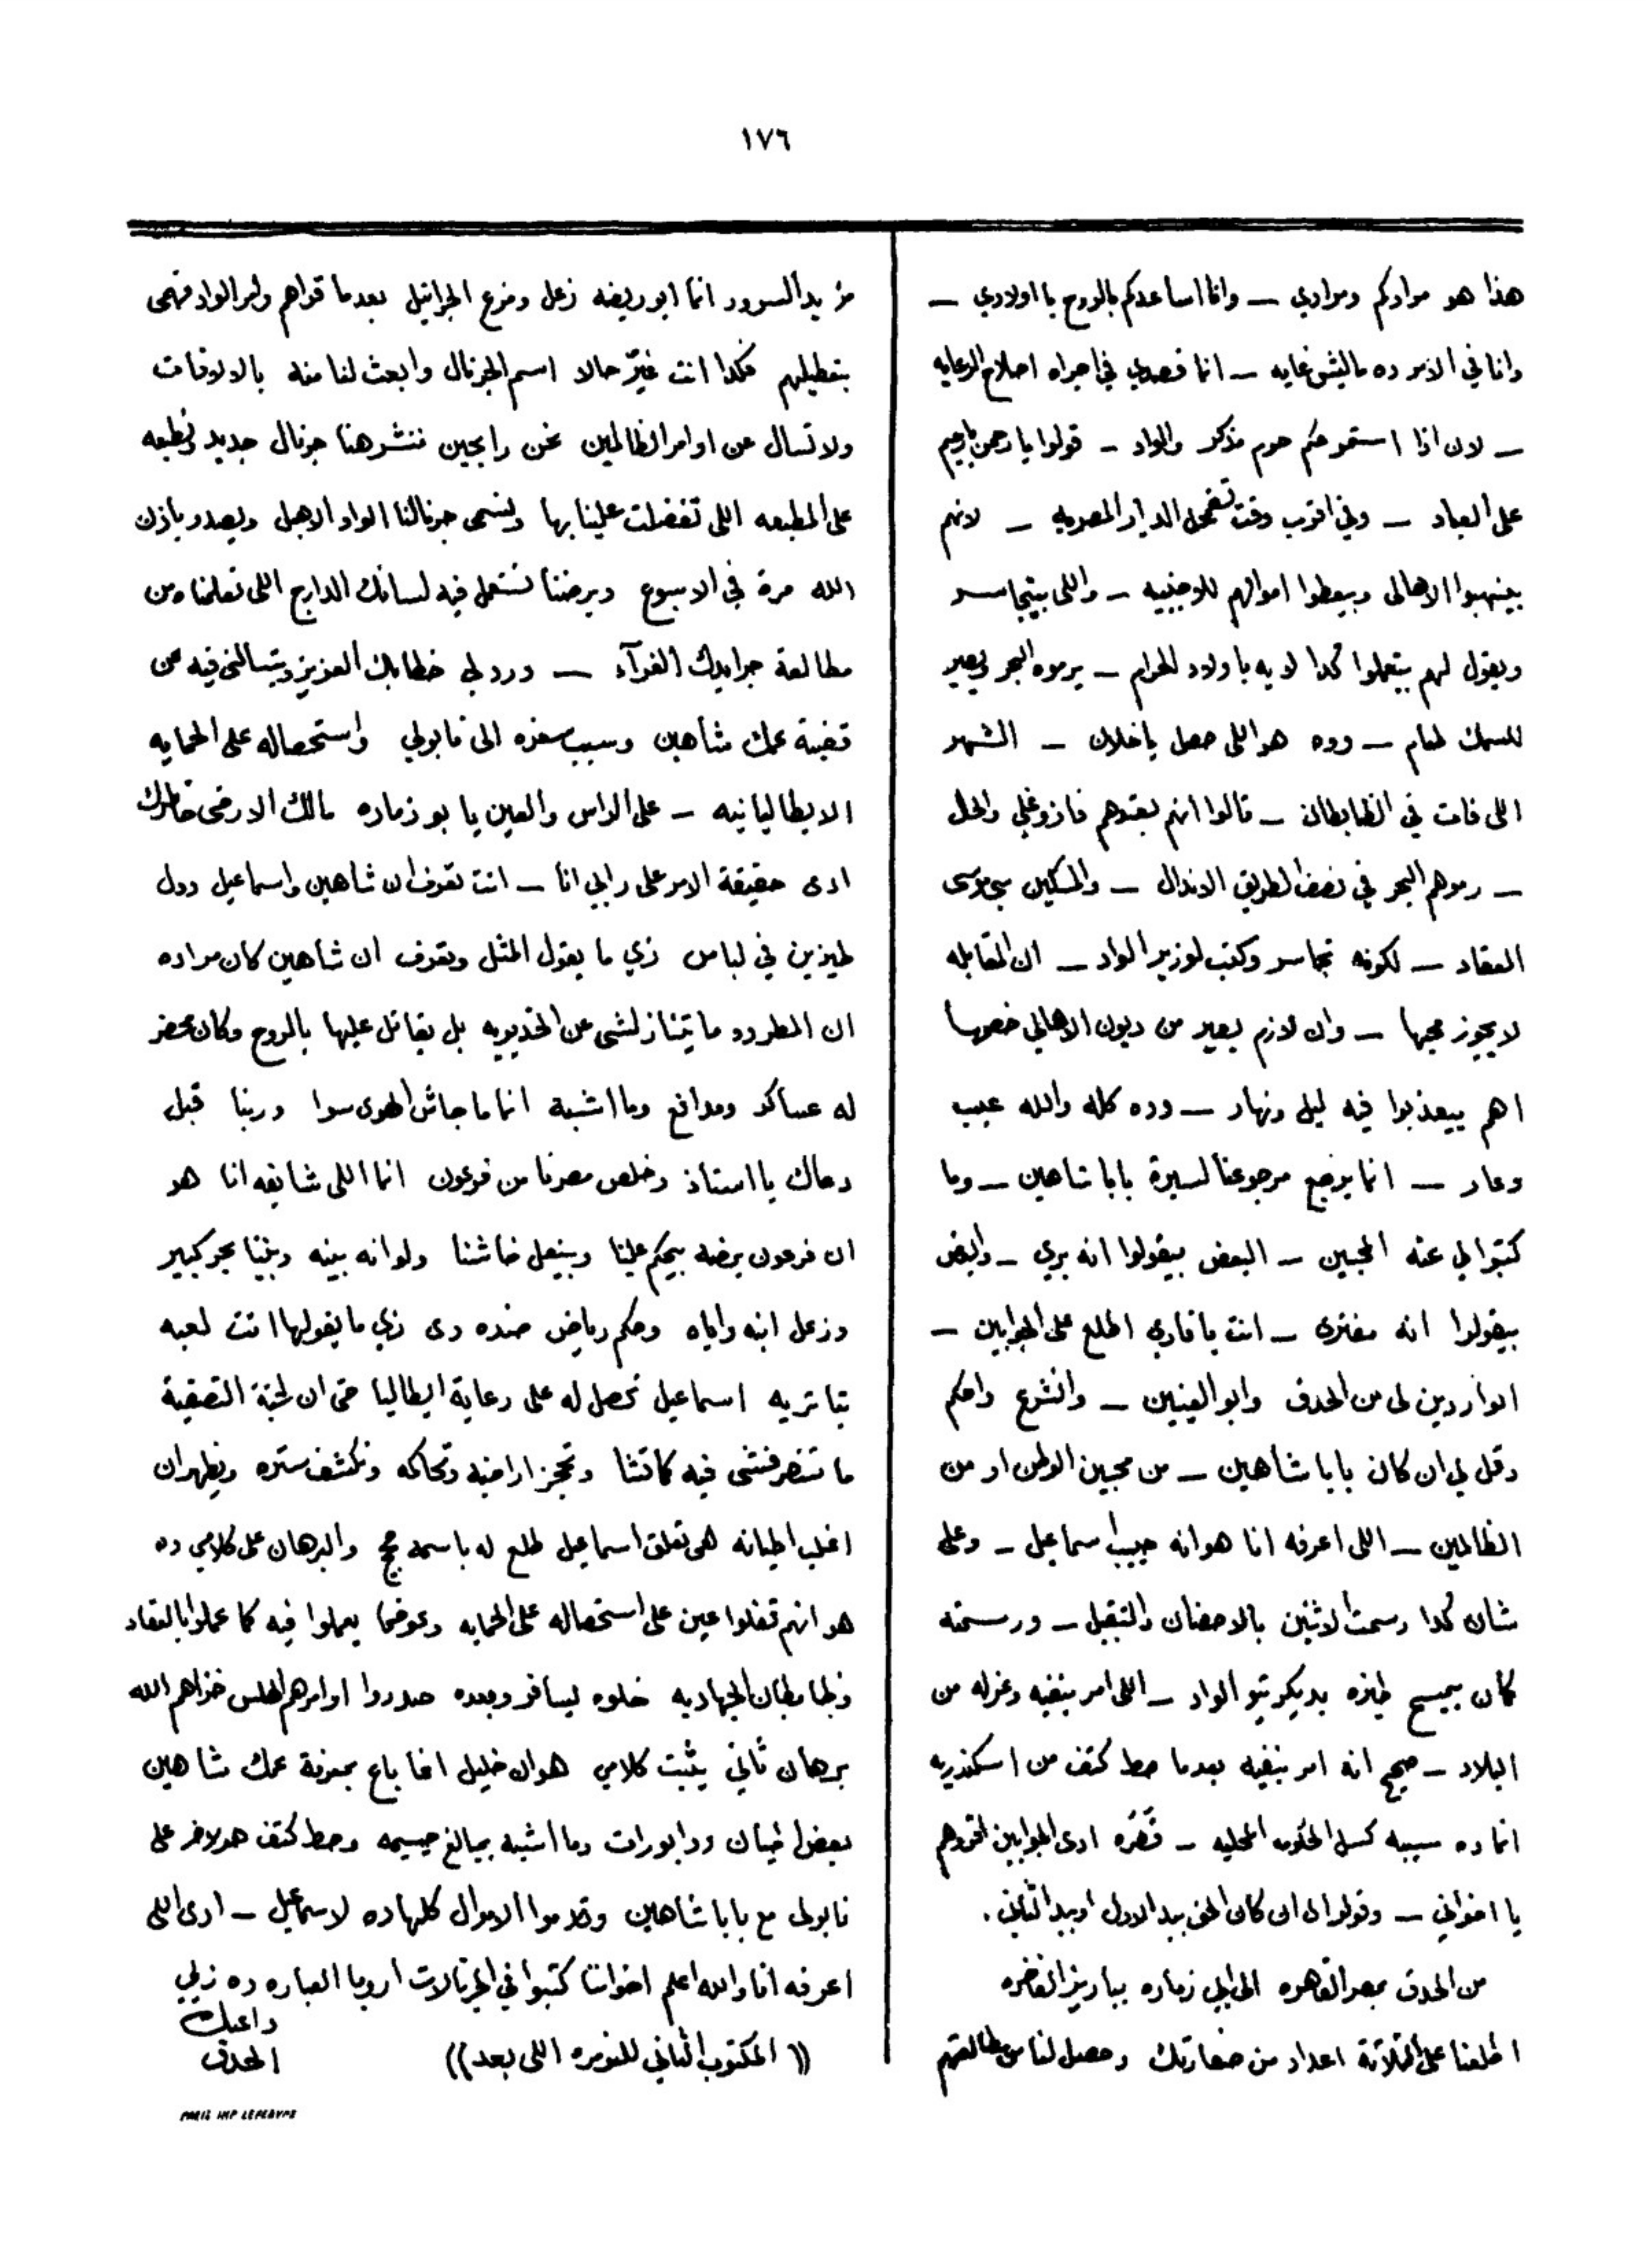 ١٧٦
هذا هو مرادكم ومرادي — وانا اساعدكم بالروح يا اولادي —
وانا في الامر ده ماليش غايه — انما قصدي في اجراه اصلاح الرعايه
— لان اذا استمر حكم حوم مذكر والواد — قولوا يا رحمن يا رحيم
على العباد — وفي اقرب وقت تضمحل الديار المصريه — لانهم
بينهبوا الاهالى وبيعطوا اموالهم للاجنبيه — واللى بيتجاسر
ويقول لهم بتعملوا كدا ليه يا ولاد الحرام — يرموه البحر ويصير
للسمك طعام — وده هو اللى حصل يا خلان — الشهر
اللى فات في الظابطان — قالوا انهم بعتوهم فازوغلي والحال
— رموهم البحر في نصف الطريق الاندال — والمسكين سي موسى
العقاد — لكونه تجاسر وكتب لوزير الواد — ان المقابله
لا يجوز محيها — وان لازم يصير من ديون الاهالي خصمها
اهم بيعذبوا فيه ليل ونهار — وده كله والله عيب
وعار — انما يرجع مرجوعنا لسيرة بابا شاهين — وما
كتبوا لي عنه المحبين — البعض بيقولوا انه بري — والبعض
بيقولوا انه مفترى — انت يا قاري اطلع على الجوابين —
الواردين لى من الحدق وابو العينين — وانشرع واحكم
وقل لي ان كان بابا شاهين — من محبين الوطن او من
الظالمين — اللى اعرفه انا هو انه حبيب اسماعيل — وعلى
شان كدا رسمت الاثنين بالاحضان والتقبيل — ورسمته
كان بيمسح طيزه بديكريتو الواد — اللى امر بنفيه وعزله من
البلاد — صحيح انه امر بنفيه بعدما حط كتف من اسكندريه
انما ده سببه كسل الحكومه المحليه — قصره ادى الجوابين اقروهم
يا اخواني — وقولوا لى ان كان الحق بيد الاول او بيد الثاني .
من الحدق بمصر القاهره الى ابي زماره بباريز الفاخره
اطلعنا على الثلاثة اعداد من صفارتك وحصل لنا من مطالعتهم
مزيد السرور انما ابو ريضه زعل ومزع الجرانيل بعدما قراهم وامر الواد فهمى
بتعطيلهم فكدا انت غيّر حالا اسم الجرنال وابعث لنا منه بالالوفات
ولا تسال عن اوامر الظالمين نحن رايحين ننشر هنا جرنال جديد ونطبعه
على المطبعه اللى تفضلت علينا بها ونسمى جرنالنا الواد الاهبل ويصدر باذن
الله مرة في الاسبوع وبرضنا نستعمل فيه لسانك الدارج اللى تعلمناه من
مطالعة جرايدك الغرآء — وردلي خطابك العزيز وبتسالنى فيه عن
قضية عمك شاهين وسبب سفره الى نابولي واستحصاله على الحمايه
الايطاليانيه — على الراس والعين يا بو زماره مالك الا رضى خاطرك
ادى حقيقة الامر على رايي انا — انت تعرف ان شاهين واسماعيل دول
طيزين في لباس زي ما يقول المثل وتعرف ان شاهين كان مراده
ان المطرود ما يتنازلشى عن الخديويه بل يقاتل عليها بالروح وكان محضر
له عساكر ومدافع وما اشبه انما ما جاش الهوى سوا وربنا قبل
دعاك يا استاذ وخلص مصرنا من فرعون انما اللى شايفه انا هو
ان فرعون برضه بيحكم علينا وبينعل خاشنا ولو انه بينه وبيننا بحر كبير
وزعل ابنه واياه وحكم رياض ضده دى زي ما يقولها انت لعبه
تياتريه اسماعيل تحصل له على رعاية ايطاليا حتى ان لجنة التصفية
ما تتصرفشى فيه كافتنا وتحجز اراضيه وتحاكمه وتكشف ستره ويظهر ان
اغلب اطيانه هى تعلق اسماعيل طلع له باسمه حجج والبرهان على كلامي ده
هو انهم تغفلوا عين على استحصاله على الحمايه وعوضما يعملوا فيه كما عملوا بالعقاد
وظابطان الجهاديه خلوه ليسافر وبعده صدروا اوامرهم الهلس خزاهم الله
برهان ثاني يثبت كلامي هو ان خليل اغا باع بمعرفة عمك شاهين
بعض اطيان ووابورات وما اشبه بمبالغ جسيمه وحط كتف هو لاخر على
نابولى مع بابا شاهين وقدموا الاموال كلها ده لاسماعيل — ادى اللى
اعرفه انا والله اعلم اخواننا كتبوا في الجرنالات اروبا العباره ده زيي
داعيك
الحدق
(( المكتوب الثاني للنومره اللى بعد ))
PARIS IMP LEFEBVRE